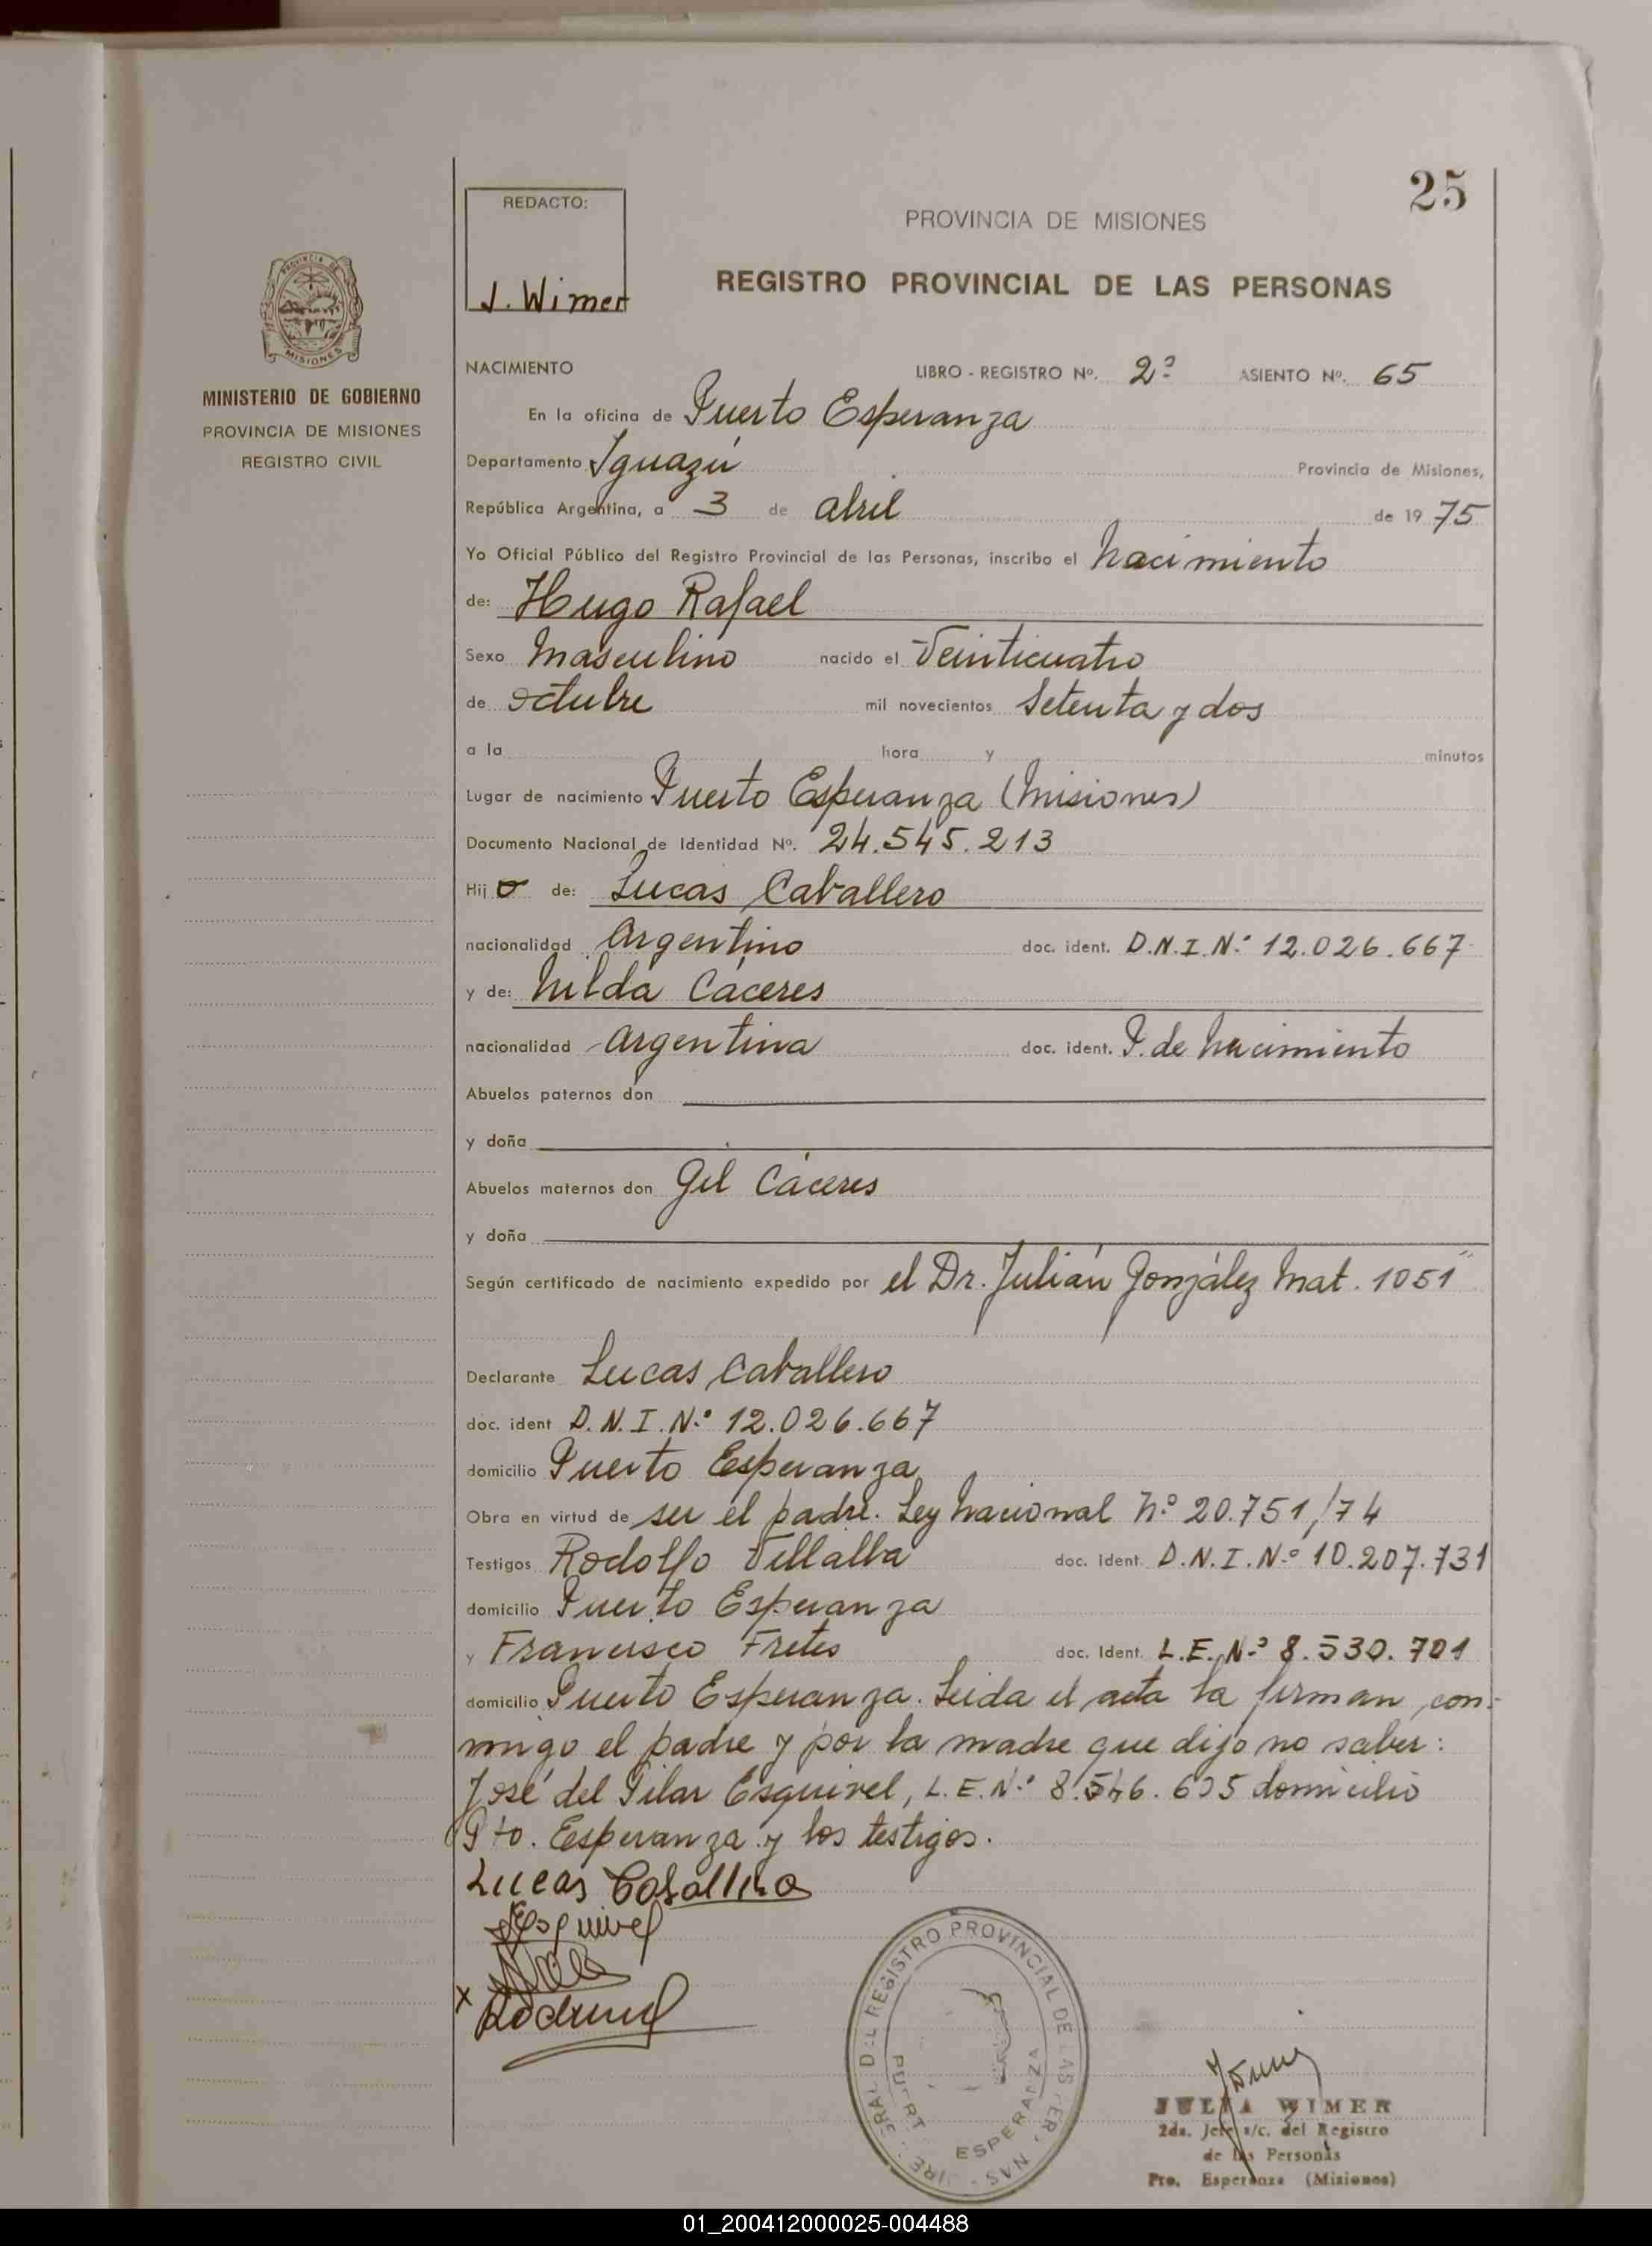 25
REDACTO:
J. Wimer
PROVINCIA DE MISIONES
REGISTRO PROVINCIAL DE LAS PERSONAS
PROVINCIA DE
MISIONES
MINISTERIO DE GOBIERNO
PROVINCIA DE MISIONES
REGISTRO CIVIL
NACIMIENTO LIBRO - REGISTRO Nº. 2º ASIENTO Nº. 65
En la oficina de Puerto Esperanza
Departamento Iguazú Provincia de Misiones,
República Argentina, a 3 de abril de 19 75
Yo Oficial Público del Registro Provincial de las Personas, inscribo el nacimiento
de: Hugo Rafael
Sexo Masculino nacido el Veinticuatro
de octubre mil novecientos Setenta y dos
a la hora y minutos
Lugar de nacimiento Puerto Esperanza (Misiones)
Documento Nacional de Identidad Nº. 24.545.213
Hij o de: Lucas Caballero
nacionalidad Argentino doc. ident. D.N.I.N.º 12.026.667
y de: Nilda Cáceres
nacionalidad argentina doc. ident. P. de nacimiento
Abuelos paternos don
y doña
Abuelos maternos don Gil Cáceres
y doña
Según certificado de nacimiento expedido por el Dr. Julián González Mat. 1051
Declarante Lucas Caballero
doc. ident D.N.I.N.º 12.026.667
domicilio Puerto Esperanza
Obra en virtud de ser el padre. Ley Nacional Nº 20.751/74
Testigos Rodolfo Villalba doc. Ident. D.N.I.N.º 10.207.731
domicilio Puerto Esperanza
y Francisco Fretes doc. Ident. L.E.N.º 8.530.701
domicilio Puerto Esperanza. Leida el acta la firman con-
migo el padre y por la madre que dijo no saber:
José del Pilar Esquivel, L.E.N.º 8.546.605 domicilio
Pto. Esperanza y los testigos.
Lucas Caballero
Esquivel
x
REGISTRO PROVINCIAL DE LAS
ESPERANZA
JULIA WIMER
2da. Jefe a/c. del Registro
de las Personas
Pto. Esperanza (Misiones)
01_200412000025-004488